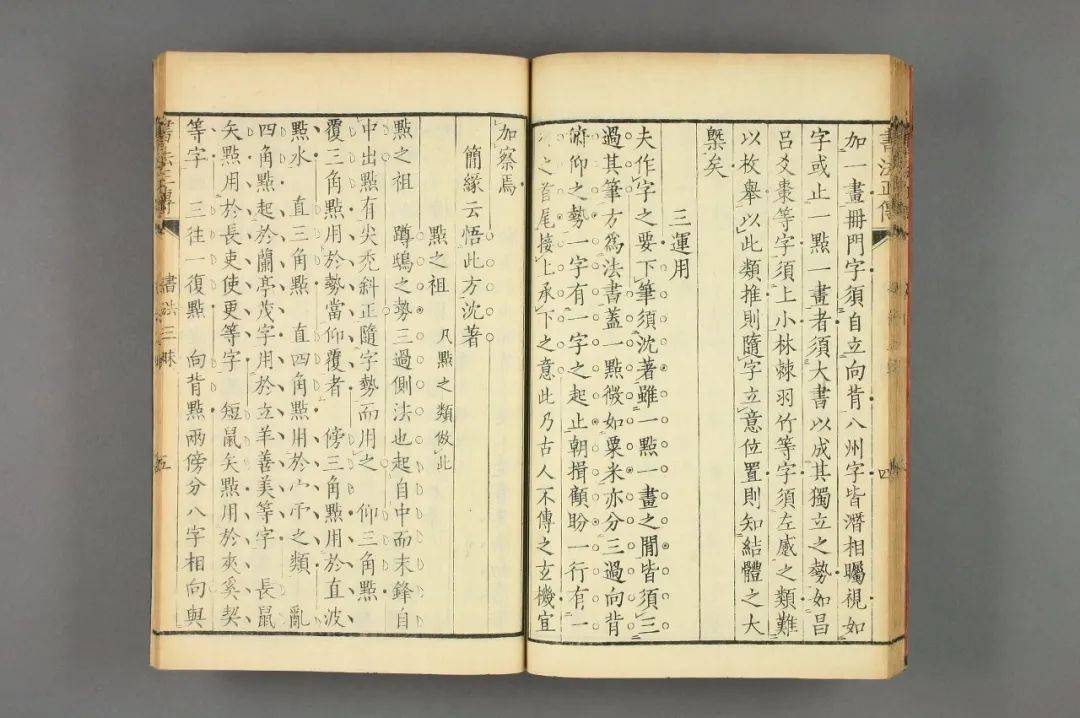 書法正傳
四
加一畫冊門字須自立向背八州字皆潛相矚視如
字或止一點一畫者須大書以成其獨立之勢如昌
呂爻棗等字須上小林棘羽竹等字須左感之類難
以枚舉以此類推則隨字立意位置則知結體之大
槩矣
三運用
夫作字之要下筆須沈著雖一點一畫之閒皆須三
過其筆方為法書蓋一點微如粟米亦分三過向背
俯仰之勢一字有一字之起止朝揖顧盼一行有一
行之首尾接上承下之意此乃古人不傳之玄機宜
加察焉
簡緣云悟此方沈著
點之祖 凡點之類倣此
點之祖 蹲鴟之勢三過側法也起自中而末鋒自
中出點有尖禿斜正隨字勢而用之 仰三角點
覆三角點用於勢當仰覆者 傍三角點用於直波
點水 直三角點 直四角點用於宀帀之類 亂
四角點起於蘭亭茂字用於立羊善美等字 長鼠
矢點用於長吏使更等字 短鼠矢點用於夾奚契
等字 三往一復點 向背點兩傍分八字相向與
書法正傳
書法三昧
五